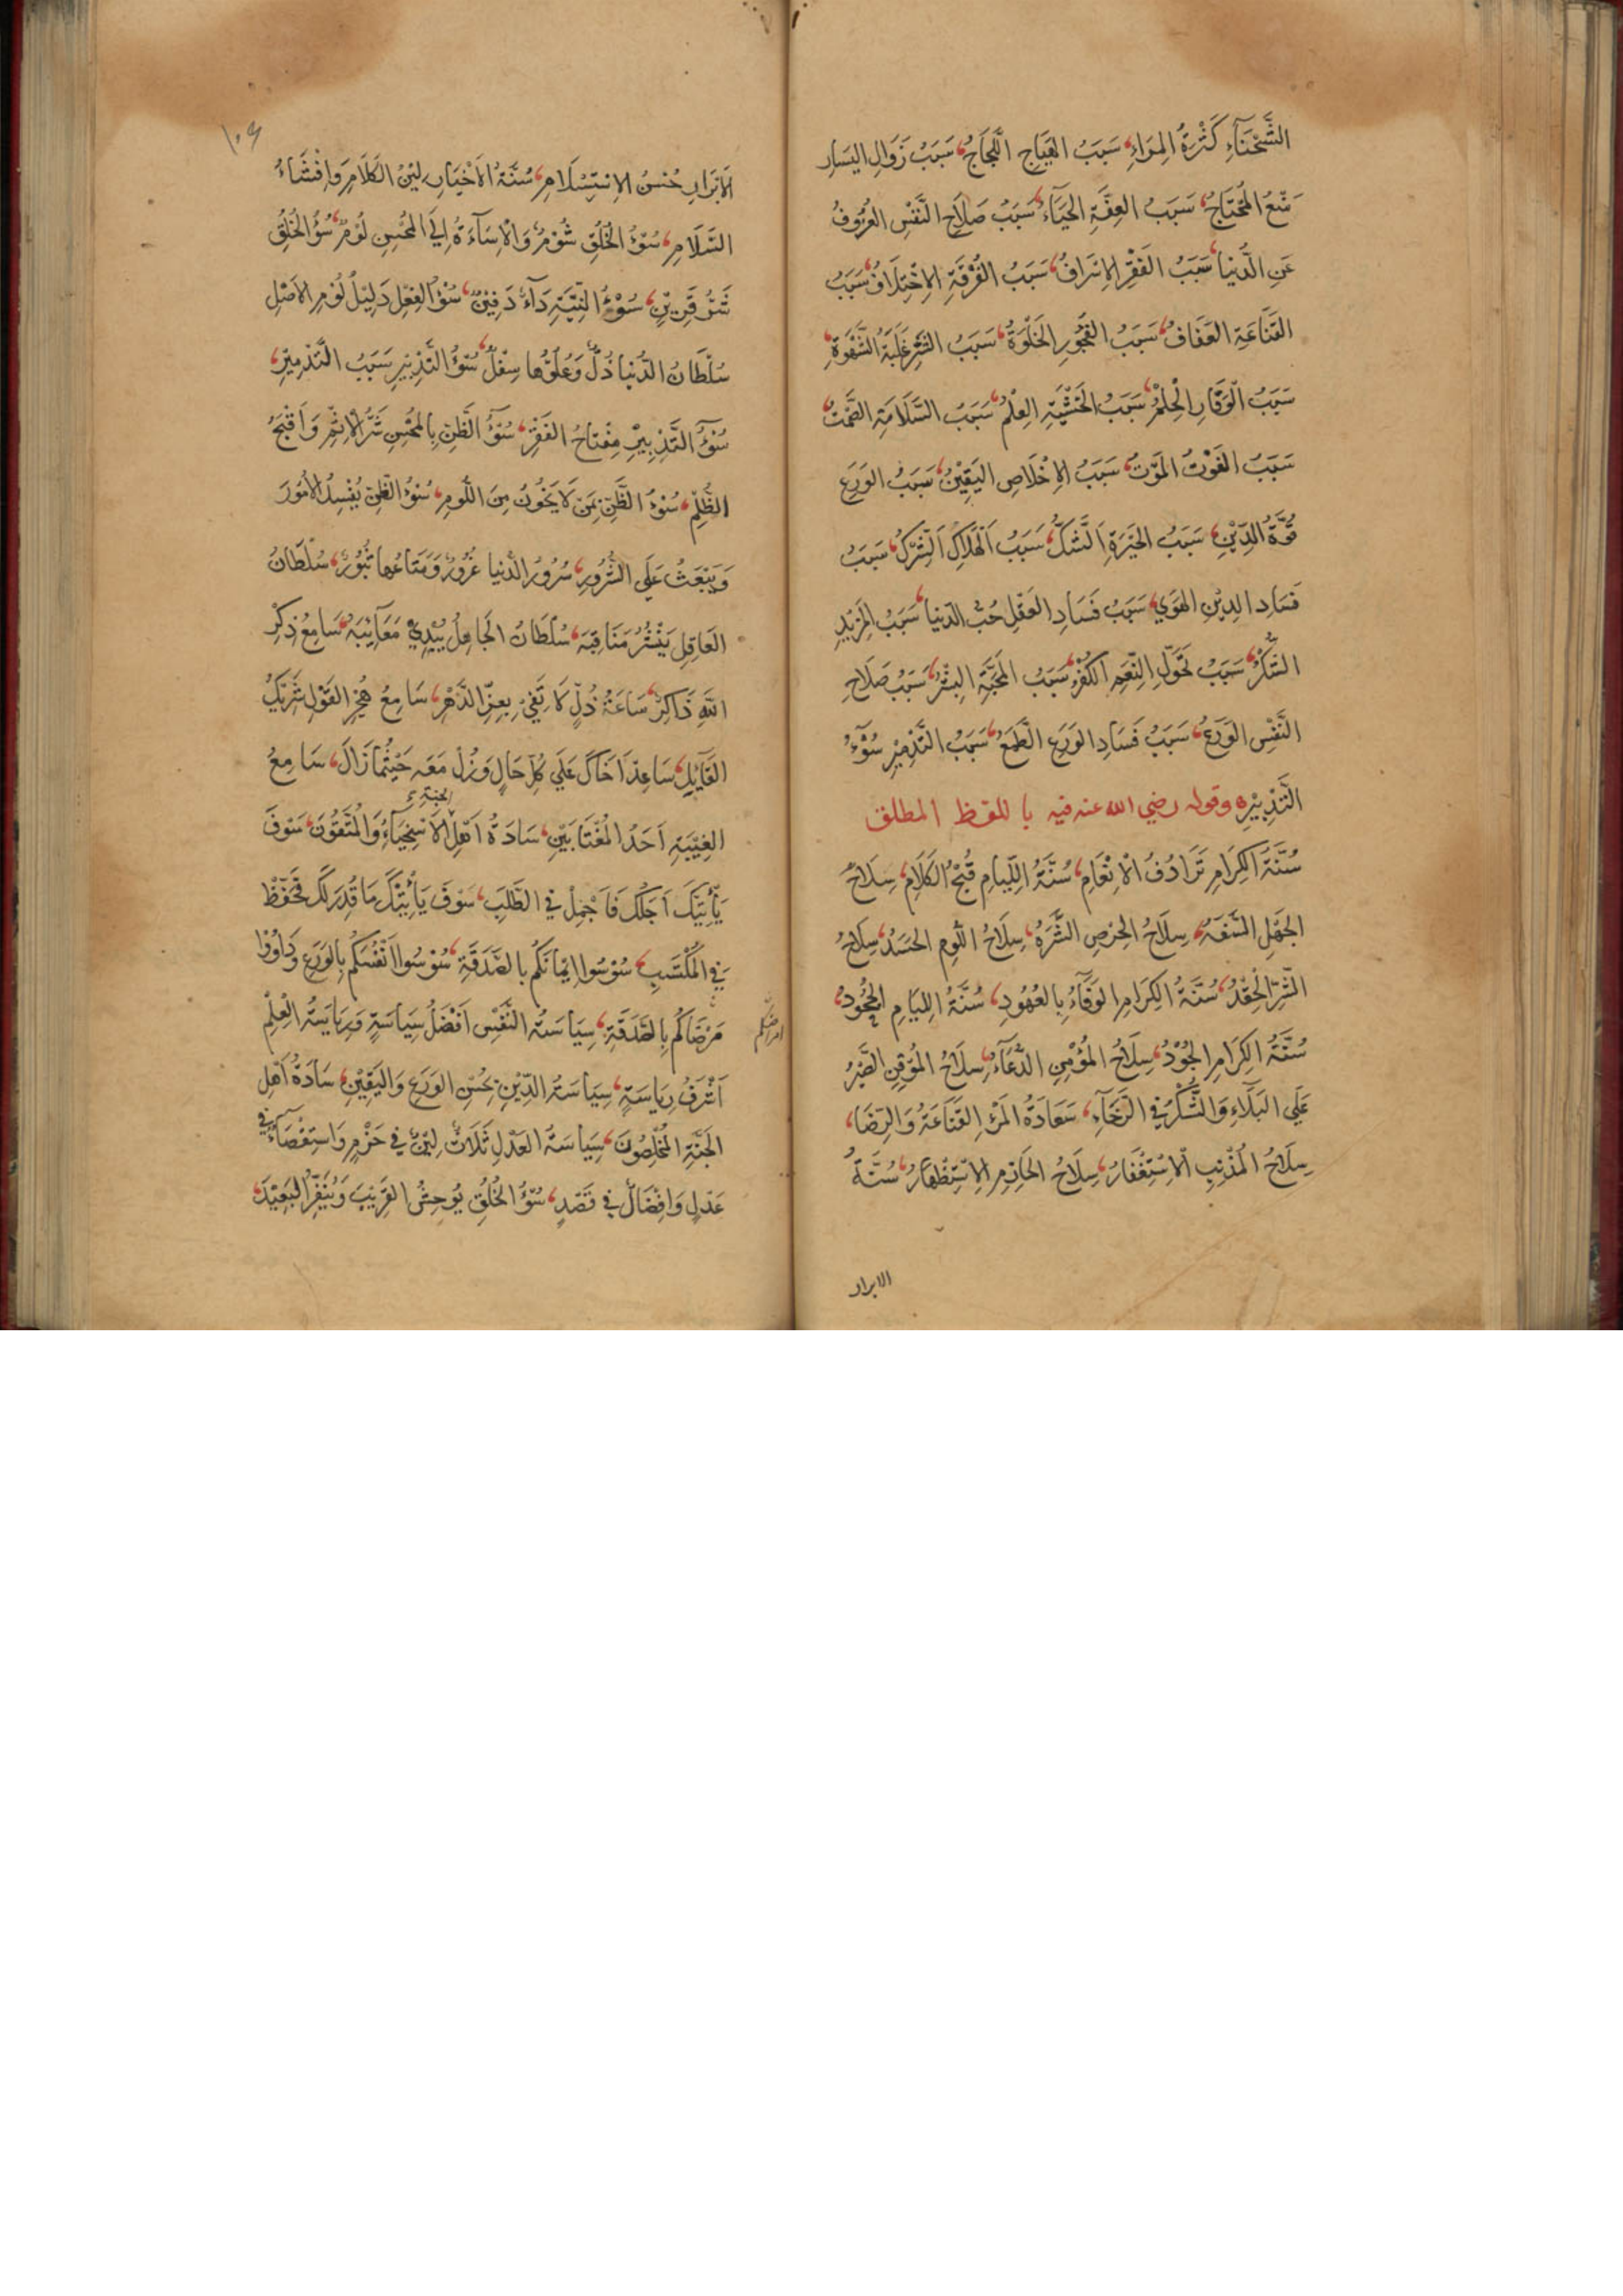 الشَّحْنَآءِ كَثْرَةُ المِرَاءِ، سَبَبُ الهَيَاجِ اللَّجَاجُ، سَبَبُ زَوَالِ اليَسَارِ
مَنْعُ المُحْتَاجِ، سَبَبُ العِفَّةِ الحَيَآءُ، سَبَبُ صَلَاحِ النَّفْسِ العُزُوفُ
عَنِ الدُّنْيا، سَبَبُ الفَقْرِ الاِسْرَافُ، سَبَبُ الفُرْقَةِ الاِخْتِلَافُ، سَبَبُ
القَنَاعَةِ العَفَافُ، سَبَبُ الفُجُورِ الخَلْوَةُ، سَبَبُ الشَّرِّ غَلَبَةُ الشَّهْوَةِ،
سَبَبُ الوَقَارِ الْحِلْمُ، سَبَبُ الخَشْيَةِ العِلْمُ، سَبَبُ السَّلَامَةِ الصَّمْتُ،
سَبَبُ الفَوْتِ المَوْتُ، سَبَبُ الاِخْلَاصِ اليَقِيْنُ، سَبَبُ الوَرَعِ
قُوَّةُ الدِّيْنِ، سَبَبُ الحَيْرَةِ الشَّكُّ، سَبَبُ الهَلَاكِ الشِّرْكُ، سَبَبُ
فَسَادِ الدِيْنِ الهَوَي، سَبَبُ فَسَادِ العَقْلِ حُبُّ الدّنيا، سَبَبُ المَزِيْدِ
الشُّكْرُ، سَبَبُ تَحَوُّلِ النِّعَمِ الكُفْرُ، سَبَبُ المَحَبَّةِ البِشْرُ، سَبَبُ صَلَاحِ
النَّفْسِ الوَرَعُ، سَبَبُ فَسَادِ الوَرَعِ الطَّمَعُ، سَبَبُ التَّدْمِيْرِ سُوْٓءُ
التَّدْبِيْرِ ٥ وقوله رضي الله عنه فيه با للفظ المطلق
سُنَّةُ الكِرَامِ تَرَادُفُ الْاِنْعَامِ، سُنَّةُ اللِّيامِ قُبْحُ الكَلَامِ، سِلَاحُ
الجَهْلِ السَّفَهُ، سِلَاحُ الحِرْصِ الشَّرَهُ، سِلَاحُ اللَّوْمِ الحَسَدُ، سِلَاحُ
الشَّرِّ الْحِقْدُ، سُنَّةُ الكِرَامِ الوَفَآءُ بِالعُهُودِ، سُنَّةُ اللِيَامِ الجُحُودُ،
سُنَّةُ الكِرَامِ الجُوْدُ، سِلَاحُ المُؤْمِنِ الدُّعَآءُ، سِلَاحُ المُوْقِنِ الصَّبْرُ
عَلَي البَلَآءِ وَالشُّكْرُ فِي الرَّخَآءِ، سَعَادَةُ المَرْءِ القَنَاعَةُ وَالرِّضَا،
سِلَاحُ المُذْنِبِ الاِسْتِغْفَارُ، سِلَاحُ الحَازِمِ الاِسْتِظْهَارُ، سُنَّةُ
الابرار
١٠٩
الاَبْرَارِ حُسْنُ الاِسْتِسْلَامِ، سُنَّةُ الاَخْيَارِ لِيْنُ الكَلَامِ وَاِفْشَاءُ
السَّلَامِ، سُوْٓءُ الخُلُقِ شُوْمٌ وَالْاِسَآءَةُ اِلَي المُحْسِنِ لُوْمٌ، سُوْءُ الخُلُقِ
شَرُّ قَرِيْنٍ، سُوْءُ النِّيَّةِ دَآءٌ دَفِيْنٌ، سُوْءُ الفِعْلِ دَلِيْلُ لُوْمِ الاَصْلِ
سُلْطَانُ الدُّنيا ذُلٌّ وَعُلُوُّها سِفْلٌ، سُوْٓءُ التَّدْبِيْرِ سَبَبُ التَّدْمِيْرِ،
سُوْٓءُ التَّدْبِيْرِ مِفْتَاحُ الفَقْرِ، سُوْٓءُ الظَّنِّ بِالمُحْسِنِ شَرُّ الاِثْمِ وَاَقْبَحُ
الظُّلْمِ، سُوْءُ الظَّنِّ بِمَنْ لَا يَخُوْنُ مِنَ اللَّوْمِ، سُوْءُ الظَّنِّ يُفْسِدُ الاُمُوْرَ
وَيَبْعَثُ عَلَي الشُّرُورِ، سُرُوْرُ الدُّنيا غُرُوْرٌ وَمَتَاعُها ثُبُوْرٌ، سُلْطَانُ
العَاقِلِ يَنْشُرُ مَنَاقِبَهُ، سُلْطَانُ الجَاهِلِ يُبْدِي مَعَآئِبَهُ، سَامِعُ ذِكْرِ
اللّٰهِ ذَاكِرٌ، سَاعَةُ ذُلٍّ لَا تَفِي بِعِزِّ الدَّهْرِ، سَامِعُ هُجْرِ القَوْلِ شَرِيْكُ
القَآئِلِ، سَاعِدْ اَخَاكَ عَلَي كُلِّ حَالٍ وَزُلْ مَعَهُ حَيْثُمَا زَالَ، سَامِعُ
الغِيْبَةِ اَحَدُ المُغْتَابَيْنِ، سَادَةُ اَهْلِ الجنة الاَسْخِيَآءُ وَالْمُتَّقُوْنَ، سَوْفَ
يَأْتِيْكَ اَجَلُكَ فَاَجْمِلْ فِي الطَّلَبِ، سَوْفَ يَأْتِيْكَ مَا قُدِرَ لَكَ فَخَفِّفْ
فِي المُكْتَسَبِ، سُوْسُوا اِيْمَانَكُمْ بِالصَّدَقَةِ، سُوْسُوا اَنْفُسَكُمْ بِالوَرَعِ وَدَاوُوْا
مَرْضَاكُمْ بِالصَّدَقَةِ، سِيَاسَةُ النَّفْسِ اَفْضَلُ سِيَاسَةٍ وَرِيَاسَةُ الْعِلْمِ
امراضكم
اَشْرَفُ رِيَاسَةٍ، سِيَاسَةُ الدِّيْنِ بِحُسْنِ الوَرَعِ وَاليَقِيْنِ، سَادَةُ اَهْلِ
الجَنَّةِ المُخْلِصُوْنَ، سِيَاسَةُ العَدْلِ ثَلَاثٌ لِيْنٌ فِي حَزْمٍ وَاسْتِقْصَآءٌ فِي
عَدْلٍ وَاِفْضَالٌ فِي قَصْدٍ، سُوْٓءُ الخُلُقِ يُوحِشُ القَرِيْبَ وَيُنَفِّرُ البَعِيْدَ،